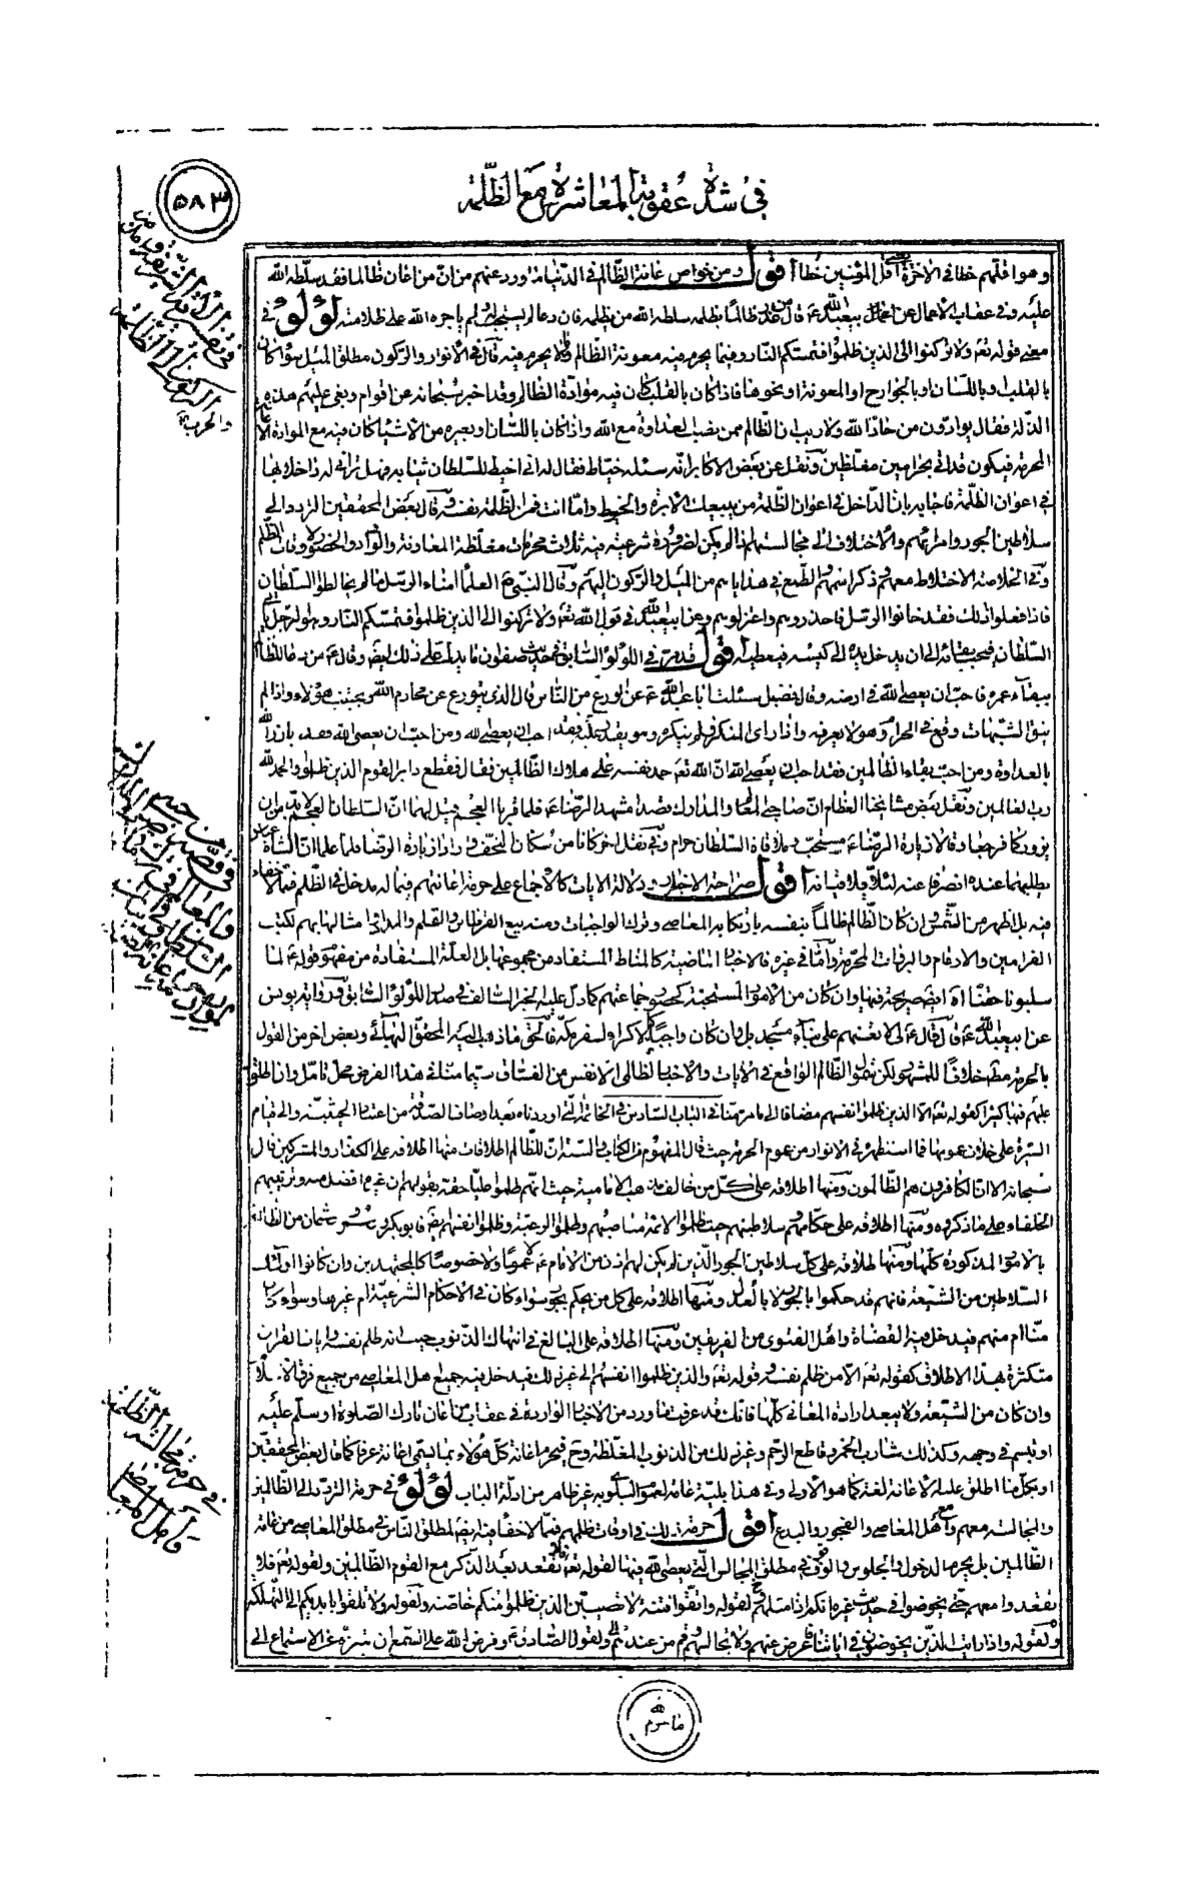 في شدة عقوبة المعاشرة مع الظلمة
٥٨٣
وهو اقلهم خطا في الاخرة اقل المؤمنين خطا اقول ومن خواص اعانة الظالم في الدنيا ما ورد عنهم من ان من اعان ظالما فقد سلطه الله
عليه وفي عقاب الاعمال عن ابيعبدالله ع قال من عذر ظالما بظلمه سلط الله من يظلمه فان دعا لم يستجب له ولم ياجره الله على ظلامته لؤلؤ في
معنى قوله تعه ولا تركنوا الى الذين ظلموا فتمسكم النار وفيما يحرم فيه معونة الظالم وما لا يحرم فيه قال في الانوار والركون مطلق الميل سواء كان
بالقلب وباللسان او بالجوارح او المعونة او نحوها فاذا كان بالقلب كان فيه موادة الظالم وقد اخبر سبحانه عن اقوام ونعى عليهم هذه
الذلة فقال يوادون من حاد الله ولا ريب ان الظالم ممن نصب العداوة مع الله واذا كان باللسان او بغيره من الاشياء كان فيه مع الموادة الاعانة
المحرمة فيكون قد اتى بحرامين مغلظين ونقل عن بعض الاكابر انه سئله خياط فقال له اني اخيط للسلطان ثيابه فهل تراني له داخلا بها
في اعوان الظلمة فاجابه بان الداخل في اعوان الظلمة من يبيعك الابرة والخيط واما انت فمن الظلمة نفسهم وقال بعض المحققين التردد الى
سلاطين الجور وامرائهم والاختلاف الى مجالستهم اذا لم يكن لضرورة شرعية فيه ثلاث محرمات مغلظة المعاونة والتوادد والحضور وقات الظلم
وفي الخلاصة الاختلاط معهم وذكر اسمهم والطمع في هداياهم من الميل والركون اليهم وقال النبي ص العلماء امناء الرسل ما لم يخالطوا السلطان
فاذا فعلوا ذلك فقد خانوا الرسل فاحذروهم واعتزلوهم وعن ابيعبدالله ع في قول الله تعه ولا تركنوا الى الذين ظلموا فتمسكم النار هو الرجل ياتي
السلطان فيحب بقائه الى ان يدخل يده الى كيسه فيعطيه اقول قد مر في اللؤلؤ السابق في حديث صفوان ما يدل على ذلك ايضا وقال ع من دعا لظالم
ببقاء عمره فاحب ان يعصي الله في ارضه وقال فضيل سئلت ابا عبدالله ع عن الورع من الناس قال الذي يتورع عن محارم الله ويجتنب هؤلاء واذا لم
يتق الشبهات وقع في الحرام وهو لا يعرفه واذا راى المنكر فلم ينكره وهو يقدر عليه فقد احب ان يعصى الله ومن احب ان يعصى الله فقد بارز الله
بالعداوة ومن احب بقاء الظالمين فقد احب ان يعصى الله ان الله تعه حمد نفسه على هلاك الظالمين فقال فقطع دابر القوم الذين ظلموا والحمد لله
رب العالمين ونقل بعض مشايخنا العظام ان صاحبي المعالم والمدارك قصدا مشهد الرضا ع فلما قربا العجم قيل لهما ان السلطان العجم لابد وان
يزوركما فرجعا وقالا زيارة الرضا ع مستحب وملاقاة السلطان حرام وفي نقل اخر كانا من سكان النجف وارادا زيارة الرضا فلما علما ان الشاه عباس
يطلبهما عنده انصرفا عنه لئلا يلاقيانه اقول صراحة الاخبار ودلالة الايات كالاجماع على حرمة اعانتهم فيما له مدخل في الظلم مما لاخفاء
فيه بل اظهر من الشمس وان كان الظالم ظالما بنفسه بارتكابه المعاصي وترك الواجبات ومنه بيع القرطاس والقلم والمداد وامثالها بهم لكتب
الفرامين والارقام والبروات المحرمة واما في غيره فالاخبار الماضية كالمناط المستفاد من مجموعها بل العلة المستفادة من مفهوم قوله ع لما
سلبونا حقنا اه ايضا صريحة فيها وان كان من الامور المستحبة كحضور جماعتهم كما دل عليه الخبر السالف في صدر اللؤلؤ السابق ورواية يونس
عن ابيعبدالله ع قال قال لي لا تعنهم على بناء مسجد بل وان كان واجبا كالاكراء لسفر مكة فالحق ما ذهب اليه المحقق البهائي وبعض اخر من القول
بالحرمة مطلقا خلافا للمشهور لكن شمول الظالم الواقع في الايات والاخبار لظالمي الانفس من الفساق سيما مثل هذا الفرض محل تامل وان اطلق
عليهم فيها كثيرا كقوله تعه الا الذين ظلموا انفسهم مضافا الى ما مر منا في الباب السادس في الخاتمة التي اوردناه بعد اوصاف الصلوة من اعتبار الحيثية والى قيام
السيرة على خلاف عمومها فما استظهره في الانوار من عموم الحرمة حيث قال المفهوم من الكتاب والسنة ان للظالم اطلاقات منها اطلاقه على الكفار والمشركين قال
سبحانه الا ان الكافرون هم الظالمون ومنها اطلاقه على كل من خالف مذهب الامامية حيث انهم ظلموا عليا حقه بقولهم ان غيره افضل منه وترتيبهم
الخلفاء على ما ذكروه ومنها اطلاقه على حكامهم وسلاطينهم حيث ظلموا الائمة مناصبهم وظلموا الرعية وظلموا انفسهم ايضا فابوبكر وعمر وعثمان من الظالمة
بالامور المذكورة كلها ومنها اطلاقه على كل سلاطين الجور الذين لم يكن لهم اذن من الامام ع لا عموما ولا خصوصا كالمجتهدين وان كانوا اولئك
السلاطين من الشيعة فانهم قد حكموا بالجور لا بالعدل ومنها اطلاقه على كل من يحكم بجور سواء كان في الاحكام الشرعية ام غيرها وسواء كان
منا ام منهم فيدخل فيه القضاة واهل الفتوى من الفريقين ومنها اطلاقه على المبالغ في انتهاك الذنوب حيث انه ظلم نفسه وايات القران
متكثرة بهذا الاطلاق كقوله تعه الا من ظلم نفسه وقوله تعه والذين ظلموا انفسهم الى غير ذلك فيدخل فيه جميع اهل المعاصي من جميع فرق الاسلام
وان كان من الشيعة ولا يبعد ارادة المعاني كلها فانك قد عرفت ما ورد من الاخبار الواردة في عقاب من اعان تارك الصلوة او سلم عليه
او تبسم في وجهه وكذلك شارب الخمر وقاطع الرحم وغير ذلك من الذنوب المغلظة وح فيحرم اعانة كل هؤلاء بما يسمى اعانة عرفا كما قال بعض المحققين
او بكل ما اطلق عليه الاعانة لغة كما هو الاولى وفي هذا بلية عامة لعموم البلوى به غير ظاهر من ادلة الباب لؤلؤ في حرمة التردد الى الظالمين
والمجالسة معهم ومع اهل المعاصي والفجور والبدع اقول حرمة ذلك في اوقات ظلمهم مما لا خفاء فيه بل مطلق الناس في مطلق المعاصي من غاية
الظالمين بل يحرم الدخول والجلوس والوقوف في مطلق المجالس التي يعصى الله فيها لقوله تعه فلا تقعد بعد الذكر مع القوم الظالمين ولقوله تعه فلا
تقعدوا معهم حتى يخوضوا في حديث غيره انكم اذا مثلهم ولقوله واتقوا فتنة لا تصيبن الذين ظلموا منكم خاصة ولقوله ولا تلقوا بايديكم الى التهلكة
ولقوله واذا رايت الذين يخوضون في اياتنا فاعرض عنهم ولا تجالسوهم قم من عندهم ولقول الصادق ع وفرض الله على السمع ان يتنزه عن الاستماع الى
في حرمة مجالسة الظالمين
واهل المعاصي
ما حرم الله